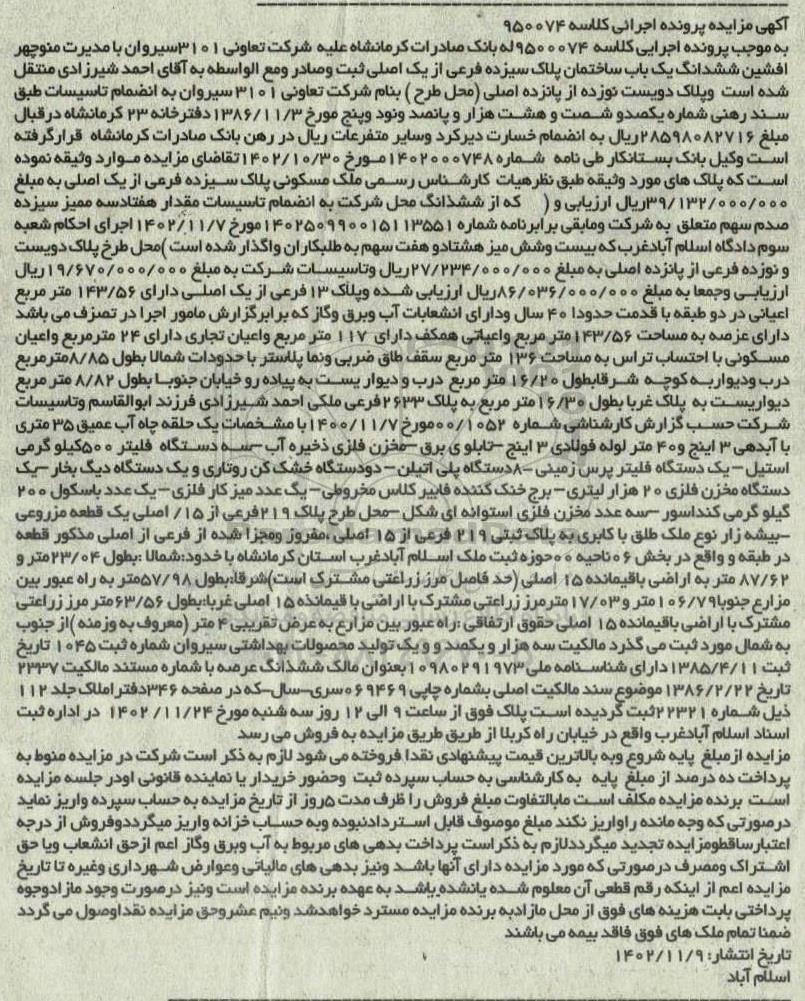 آگهی مزایده پرونده اجرائی کلاسه ۹۵۰۰۷۴
به موجب پرونده اجرایی کلاسه ۹۵۰۰۰۷۴له بانک صادرات کرمانشاه علیه شرکت تعاونی ۳۱۰۱سیروان با مدیریت منوچهر
افشین ششدانگ یک باب ساختمان پلاک سیزده فرعی از یک اصلی ثبت وصادر ومع الواسطه به آقای احمد شیرزادی منتقل
شده است وپلاک دویست نوزده از پانزده اصلی (محل طرح ) بنام شرکت تعاونی ۳۱۰۱ سیروان به انضمام تاسیسات طبق
سند رهنی شماره یکصدو شصت و هشت هزار و پانصد ونود وپنج مورخ ۱۳۸۶/۱۱/۳دفترخانه ۲۳ کرمانشاه درقبال
مبلغ ۲۸۵۹۸۰۸۲۷۱۶ریال به انضمام خسارت دیرکرد وسایر متفرعات ریال در رهن بانک صادرات کرمانشاه قرارگرفته
است وکیل بانک بستانکار طی نامه شماره ۱۴۰۲۰۰۰۷۴۸مورخ ۱۴۰۲/۱۰/۳۰تقاضای مزایده موارد وثیقه نموده
است که پلاک های مورد وثیقه طبق نظرهیات کارشناس رسمی ملک مسکونی پلاک سیزده فرعی از یک اصلی به مبلغ
۳۹/۱۳۲/۰۰۰/۰۰۰ریال ارزیابی و ( که از ششدانگ محل شرکت به انضمام تاسیسات مقدار هفتادسه ممیز سیزده
صدم سهم متعلق به شرکت ومابقی برابرنامه شماره ۱۴۰۲۵۰۹۹۰۰۱۵۱۱۳۵۵۱مورخ ۱۴۰۲/۱۱/۷اجرای احکام شعبه
سوم دادگاه اسلام آبادغرب که بیست وشش میز هشتادو هفت سهم به طلبکاران واگذار شده است )محل طرح پلاک دویست
و نوزده فرعی از پانزده اصلی به مبلغ ۲۷/۲۳۴/۰۰۰/۰۰۰ریال وتاسیسات شرکت به مبلغ ۱۹/۶۷۰/۰۰۰/۰۰۰ریال
ارزیابی وجمعا به مبلغ ۸۶/۰۳۶/۰۰۰/۰۰۰ریال ارزیابی شده وپلاک ۱۳فرعی از یک اصلی دارای ۱۴۳/۵۶ متر مربع
اعیانی در دو طبقه با قدمت حدودا ۴۰ سال ودارای انشعابات آب وبرق وگاز که برابرگزارش مامور اجرا در تصرف می باشد
دارای عرصه به مساحت ۱۴۳/۵۶متر مربع واعیانی همکف دارای ۱۱۷ متر مربع واعیان تجاری دارای ۲۴ مترمربع واعیان
مسکونی با احتساب تراس به مساحت ۱۳۶ متر مربع سقف طاق ضربی ونما پلاستر با حدودات شمالا بطول ۸/۸۵مترمربع
درب ودیواربه کوچه شرقابطول ۱۶/۲۰ متر مربع درب و دیوار یست به پیاده رو خیابان جنوبا بطول ۸/۸۲ متر مربع
دیواریست به پلاک غربا بطول ۱۶/۳۰متر مربع به پلاک ۲۶۳۳فرعی ملکی احمد شیرزادی فرزند ابوالقاسم وتاسیسات
شرکت حسب گزارش کارشناسی شماره ۰۰/۱۰۵۲مورخ ۱۴۰۰/۱۱/۷با مشخصات یک حلقه چاه آب عمیق ۳۵ متری
با آبدهی ۳ اینچ و ۴۰ متر لوله فولادی ۳ اینچ –تابلو ی برق –مخزن فلزی ذخیره آب –سه دستگاه فلیتر ۵۰۰کیلو گرمی
استیل – یک دستگاه فلیتر پرس زمینی –۸دستگاه پلی اتیلن – دودستگاه خشک کن روتاری و یک دستگاه دیگ بخار –یک
دستگاه مخزن فلزی ۲۰ هزار لیتری – برج خنک کننده فایبر کلاس مخروطی – یگ عدد میز کار فلزی – یک عدد باسکول ۲۰۰
گیلو گرمی کنداسور –سه عدد مخزن فلزی استوانه ای شکل –محل طرح پلاک ۲۱۹فرعی از ۱۵/ اصلی یک قطعه مزروعی
–بیشه زار نوع ملک طلق با کابری به پلاک ثبتی ۲۱۹ فرعی از ۱۵ اصلی ،مفروز ومجزا شده از فرعی از اصلی مذکور قطعه
در طبقه و واقع در بخش ۰۶ ناحیه ۰۰حوزه ثبت ملک اسلام آبادغرب استان کرمانشاه با حدود:شمالا :بطول ۲۳/۰۴متر و
۸۷/۶۲ متر به اراضی باقیمانده ۱۵ اصلی (حد فاصل مرز زراعتی مشترک است)شرقا:بطول ۵۷/۹۸متر به راه عبور بین
مزارع جنوبا۱۰۶/۷۹متر و ۱۷/۰۳مترمرز زراعتی مشترک با اراضی با قیمانده ۱۵ اصلی غربا:بطول ۶۳/۵۶متر مرز زراعتی
مشترک با اراضی باقیمانده ۱۵ اصلی حقوق ارتفاقی :راه عبور بین مزارع به عرض تقریبی ۴ متر (معروف به وزمنه )از جنوب
به شمال مورد ثبت می گذرد مالکیت سه هزار و یکصد و و یک تولید محصولات بهداشتی سیروان شماره ثبت ۱۰۴۵ تاریخ
ثبت ۱۳۸۵/۴/۱۱دارای شناسنامه ملی ۱۰۹۸۰۲۹۱۹۷۳بعنوان مالک ششدانگ عرصه با شماره مستند مالکیت ۲۳۳۷
تاریخ ۱۳۸۶/۲/۲۲ موضوع سند مالکیت اصلی بشماره چاپی ۰۶۹۴۶۹سری–سال–که در صفحه ۳۴۶دفتر املاک جلد ۱۱۲
ذیل شماره ۲۲۳۲۱ثبت گردیده است پلاک فوق از ساعت ۹ الی ۱۲ روز سه شنبه مورخ ۱۴۰۲/۱۱/۲۴ در اداره ثبت
اسناد اسلام آبادغرب واقع در خیابان راه کربلا از طریق طریق مزایده به فروش می رسد
مزایده ازمبلغ پایه شروع وبه بالاترین قیمت پیشنهادی نقدا فروخته می شود لازم به ذکر است شرکت در مزایده منوط به
پرداخت ده درصد از مبلغ پایه به کارشناسی به حساب سپرده ثبت وحضور خریدار یا نماینده قانونی اودر جلسه مزایده
است برنده مزایده مکلف است مابالتفاوت مبلغ فروش را ظرف مدت ۵روز از تاریخ مزایده به حساب سپرده واریز نماید
درصورتی که وجه مانده راواریز نکند مبلغ موصوف قابل استردادنبوده وبه حساب خزانه واریز میگرددوفروش از درجه
اعتبارساقطومزایده تجدید میگرددلازم به ذکراست پرداخت بدهی های مربوط به آب وبرق وگاز اعم ازحق انشعاب ویا حق
اشتراک ومصرف درصورتی که مورد مزایده دارای آنها باشد ونیز بدهی های مالیاتی وعوارض شهرداری وغیره تا تاریخ
مزایده اعم از اینکه رقم قطعی آن معلوم شده یانشده باشد به عهده برنده مزایده است ونیز درصورت وجود مازادوجوه
پرداختی بابت هزینه های فوق از محل مازادبه برنده مزایده مسترد خواهدشد ونیم عشروحق مزایده نقداوصول می گردد
ضمنا تمام ملک های فوق فاقد بیمه می باشند
تاریخ انتشار: ۱۴۰۲/۱۱/۹
اسلام آباد